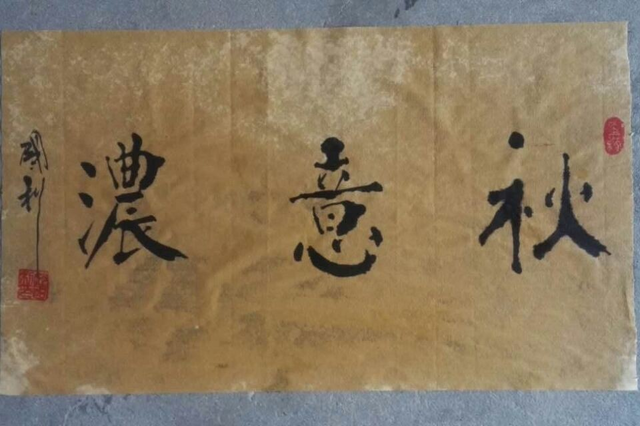 秋意濃
國利